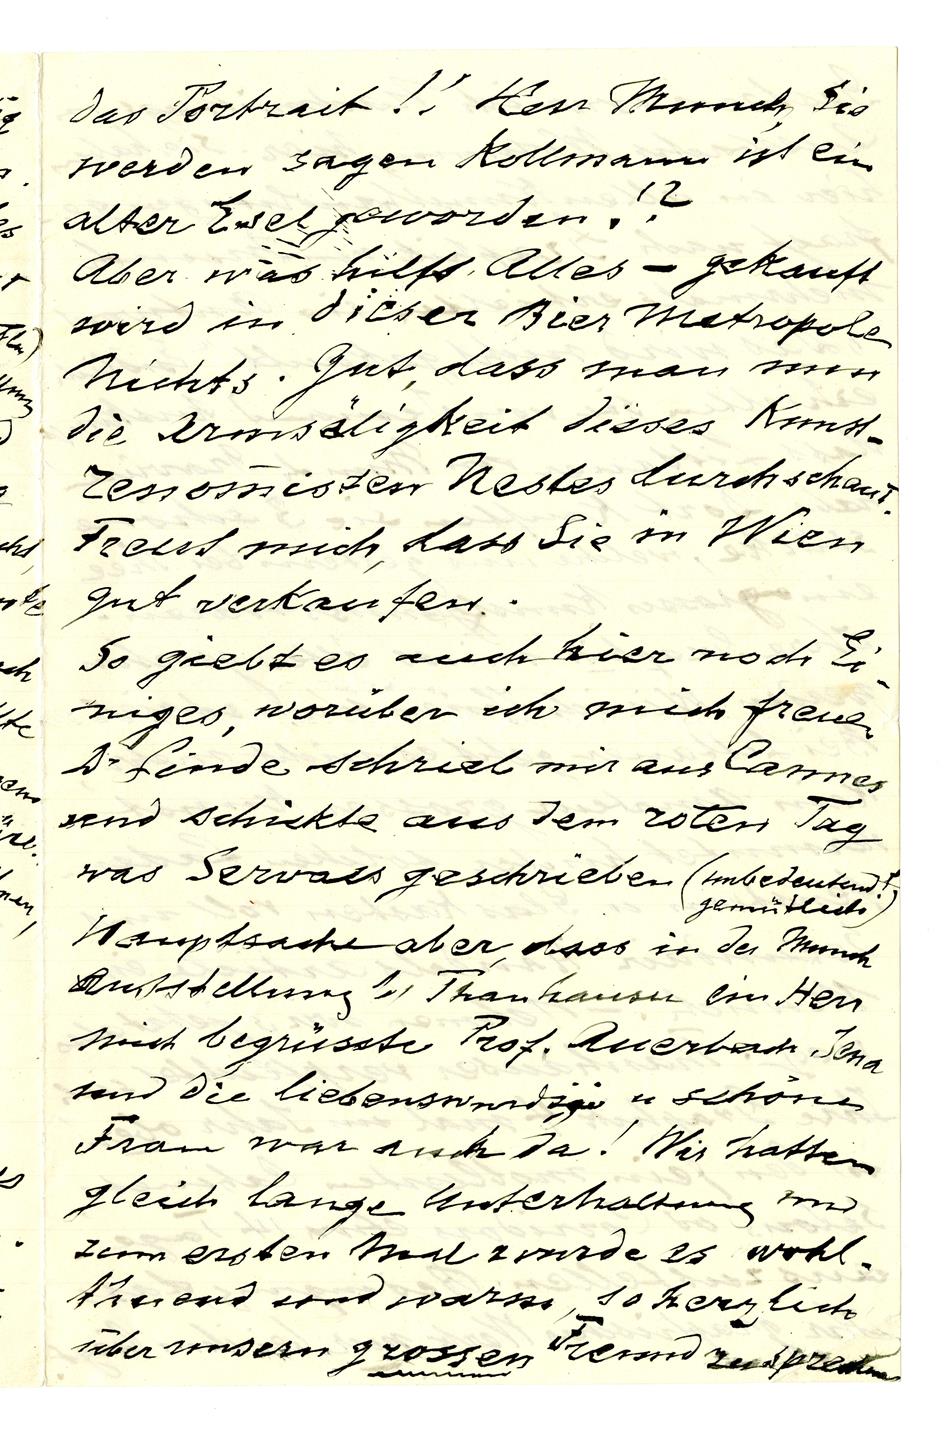 das Portrait !! Herr Munch, Sie
werden sagen Kollmann ist ein
alter Esel geworden !?
Aber was hilft Alles – gekauft
wird in dieser Bier Metropole
Nichts. Gut, dass man nun
die Armsäligkeit dieses Kunst-
renomisten Nestes durchschaut.
Freut mich, dass Sie in Wien
gut verkaufen.
So giebt es auch hier noch Ei-
niges, worüber ich mich freue
Dr Linde schrieb mir aus Cannes
und schickte aus dem roten Tag
was Servaes geschrieben (unbedeutend!
gemütlich)
Hauptsache aber, dass in der Munch
Ausstellung bei Thanhauser ein Herr
mich begrüsste Prof. Auerbach Jena
und die liebenswürdige u schöne
Frau war auch da! Wir hatten
gleich lange Unterhaltung und
zum ersten Mal wurde es wohl-
thuend und warm, so herzlich
über unsern grossen Freund zu sprechen